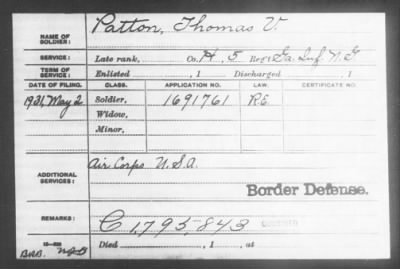 NAME OF SOLDIER: Patton, Thomas V.
SERVICE: Late rank, Co. H, 5 Reg't Ga. Inf. N. G.
TERM OF SERVICE: Enlisted , 1 Discharged , 1
DATE OF FILING. CLASS. APPLICATION NO. LAW. CERTIFICATE NO.
1931, May 2 Soldier, 1691761 R.E.
Widow,
Minor,
ADDITIONAL SERVICES: Air Corps U.S.A.
Border Defense.
REMARKS: C 1,795,843
Died , 1 , at